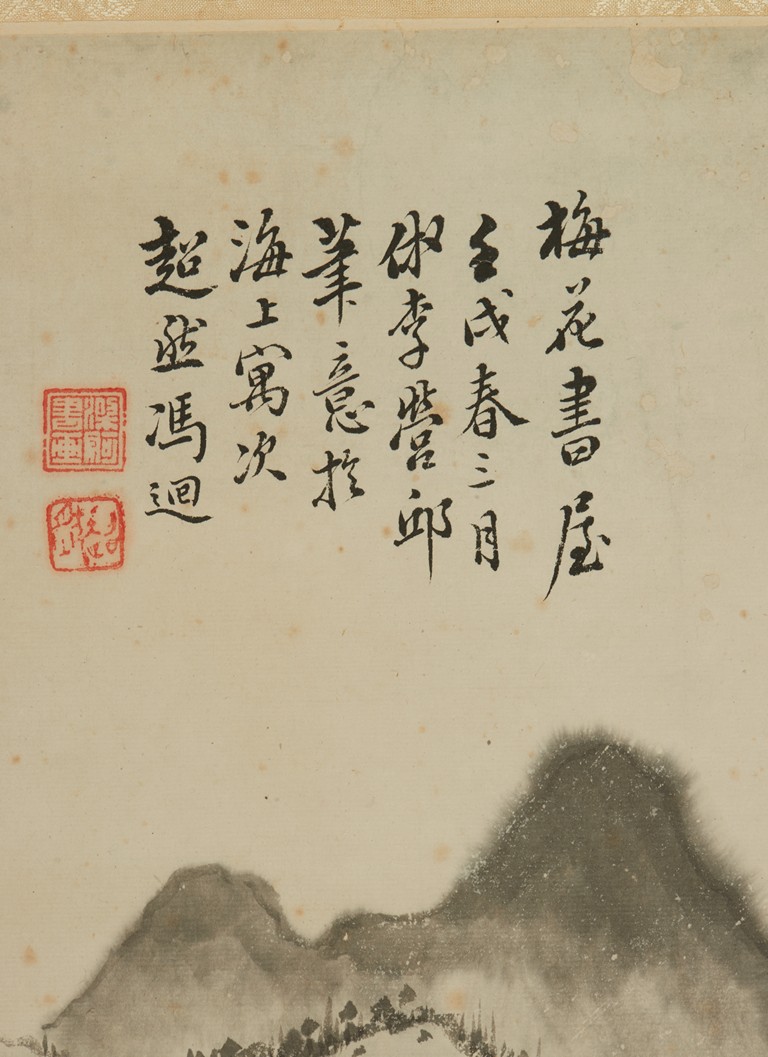 梅花書屋
壬戌春三月
倣李營邱
筆意於
海上寓次
超然馮迥